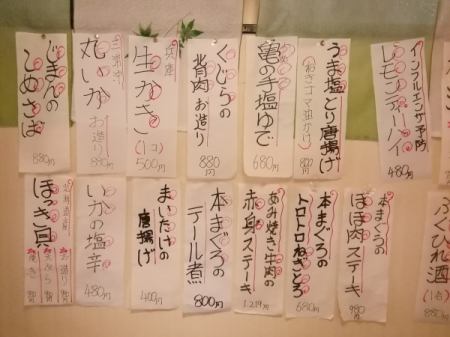 インフルエンザ予防
レモンチューハイ
480円
うま塩とり唐揚げ
ねぎゴマ油かけ
亀の手塩ゆで
680円
くじらの
背肉お造り
880円
兵庫
生かき(1コ)
500円
丸いか
お造り
880円
じまんの
しめさば
880円
ふぐひれ酒
(1合)
880円
本まぐろの
ほほ肉ステーキ
980円
本まぐろの
トロトロねぎとろ
680円
あみ焼き牛肉の
赤身ステーキ
本まぐろの
テール煮
800円
まいたけの
唐揚げ
400円
いかの塩辛
480円
北海道産
ほっき貝
お造り
天ぷら
焼き